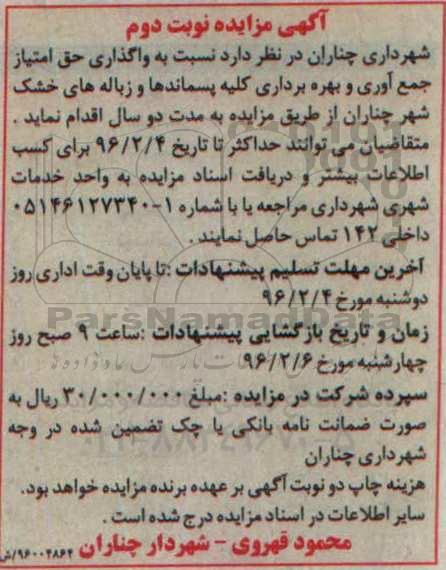 آگهی مزایده نوبت دوم
شهرداری چناران در نظر دارد نسبت به واگذاری حق امتیاز
جمع آوری و بهره برداری کلیه پسماندها و زباله های خشک
شهر چناران از طریق مزایده به مدت دو سال اقدام نماید .
متقاضیان می توانند حداکثر تا تاریخ ۹۶/۲/۴ برای کسب
اطلاعات بیشتر و دریافت اسناد مزایده به واحد خدمات
شهری شهرداری مراجعه یا با شماره ۱-۰۵۱۴۶۱۲۷۳۴۰
داخلی ۱۴۲ تماس حاصل نمایند .
آخرین مهلت تسلیم پیشنهادات :تا پایان وقت اداری روز
دوشنبه مورخ ۹۶/۲/۴
زمان و تاریخ بازگشایی پیشنهادات :ساعت ۹ صبح روز
چهارشنبه مورخ ۹۶/۲/۶
سپرده شرکت در مزایده :مبلغ ۳۰/۰۰۰/۰۰۰ ریال به
صورت ضمانت نامه بانکی یا چک تضمین شده در وجه
شهرداری چناران
هزینه چاپ دو نوبت آگهی بر عهده برنده مزایده خواهد بود.
سایر اطلاعات در اسناد مزایده درج شده است .
محمود قهروی - شهردار چناران
۹۶۰۰۴۸۶۴/ش
ParsNamadData